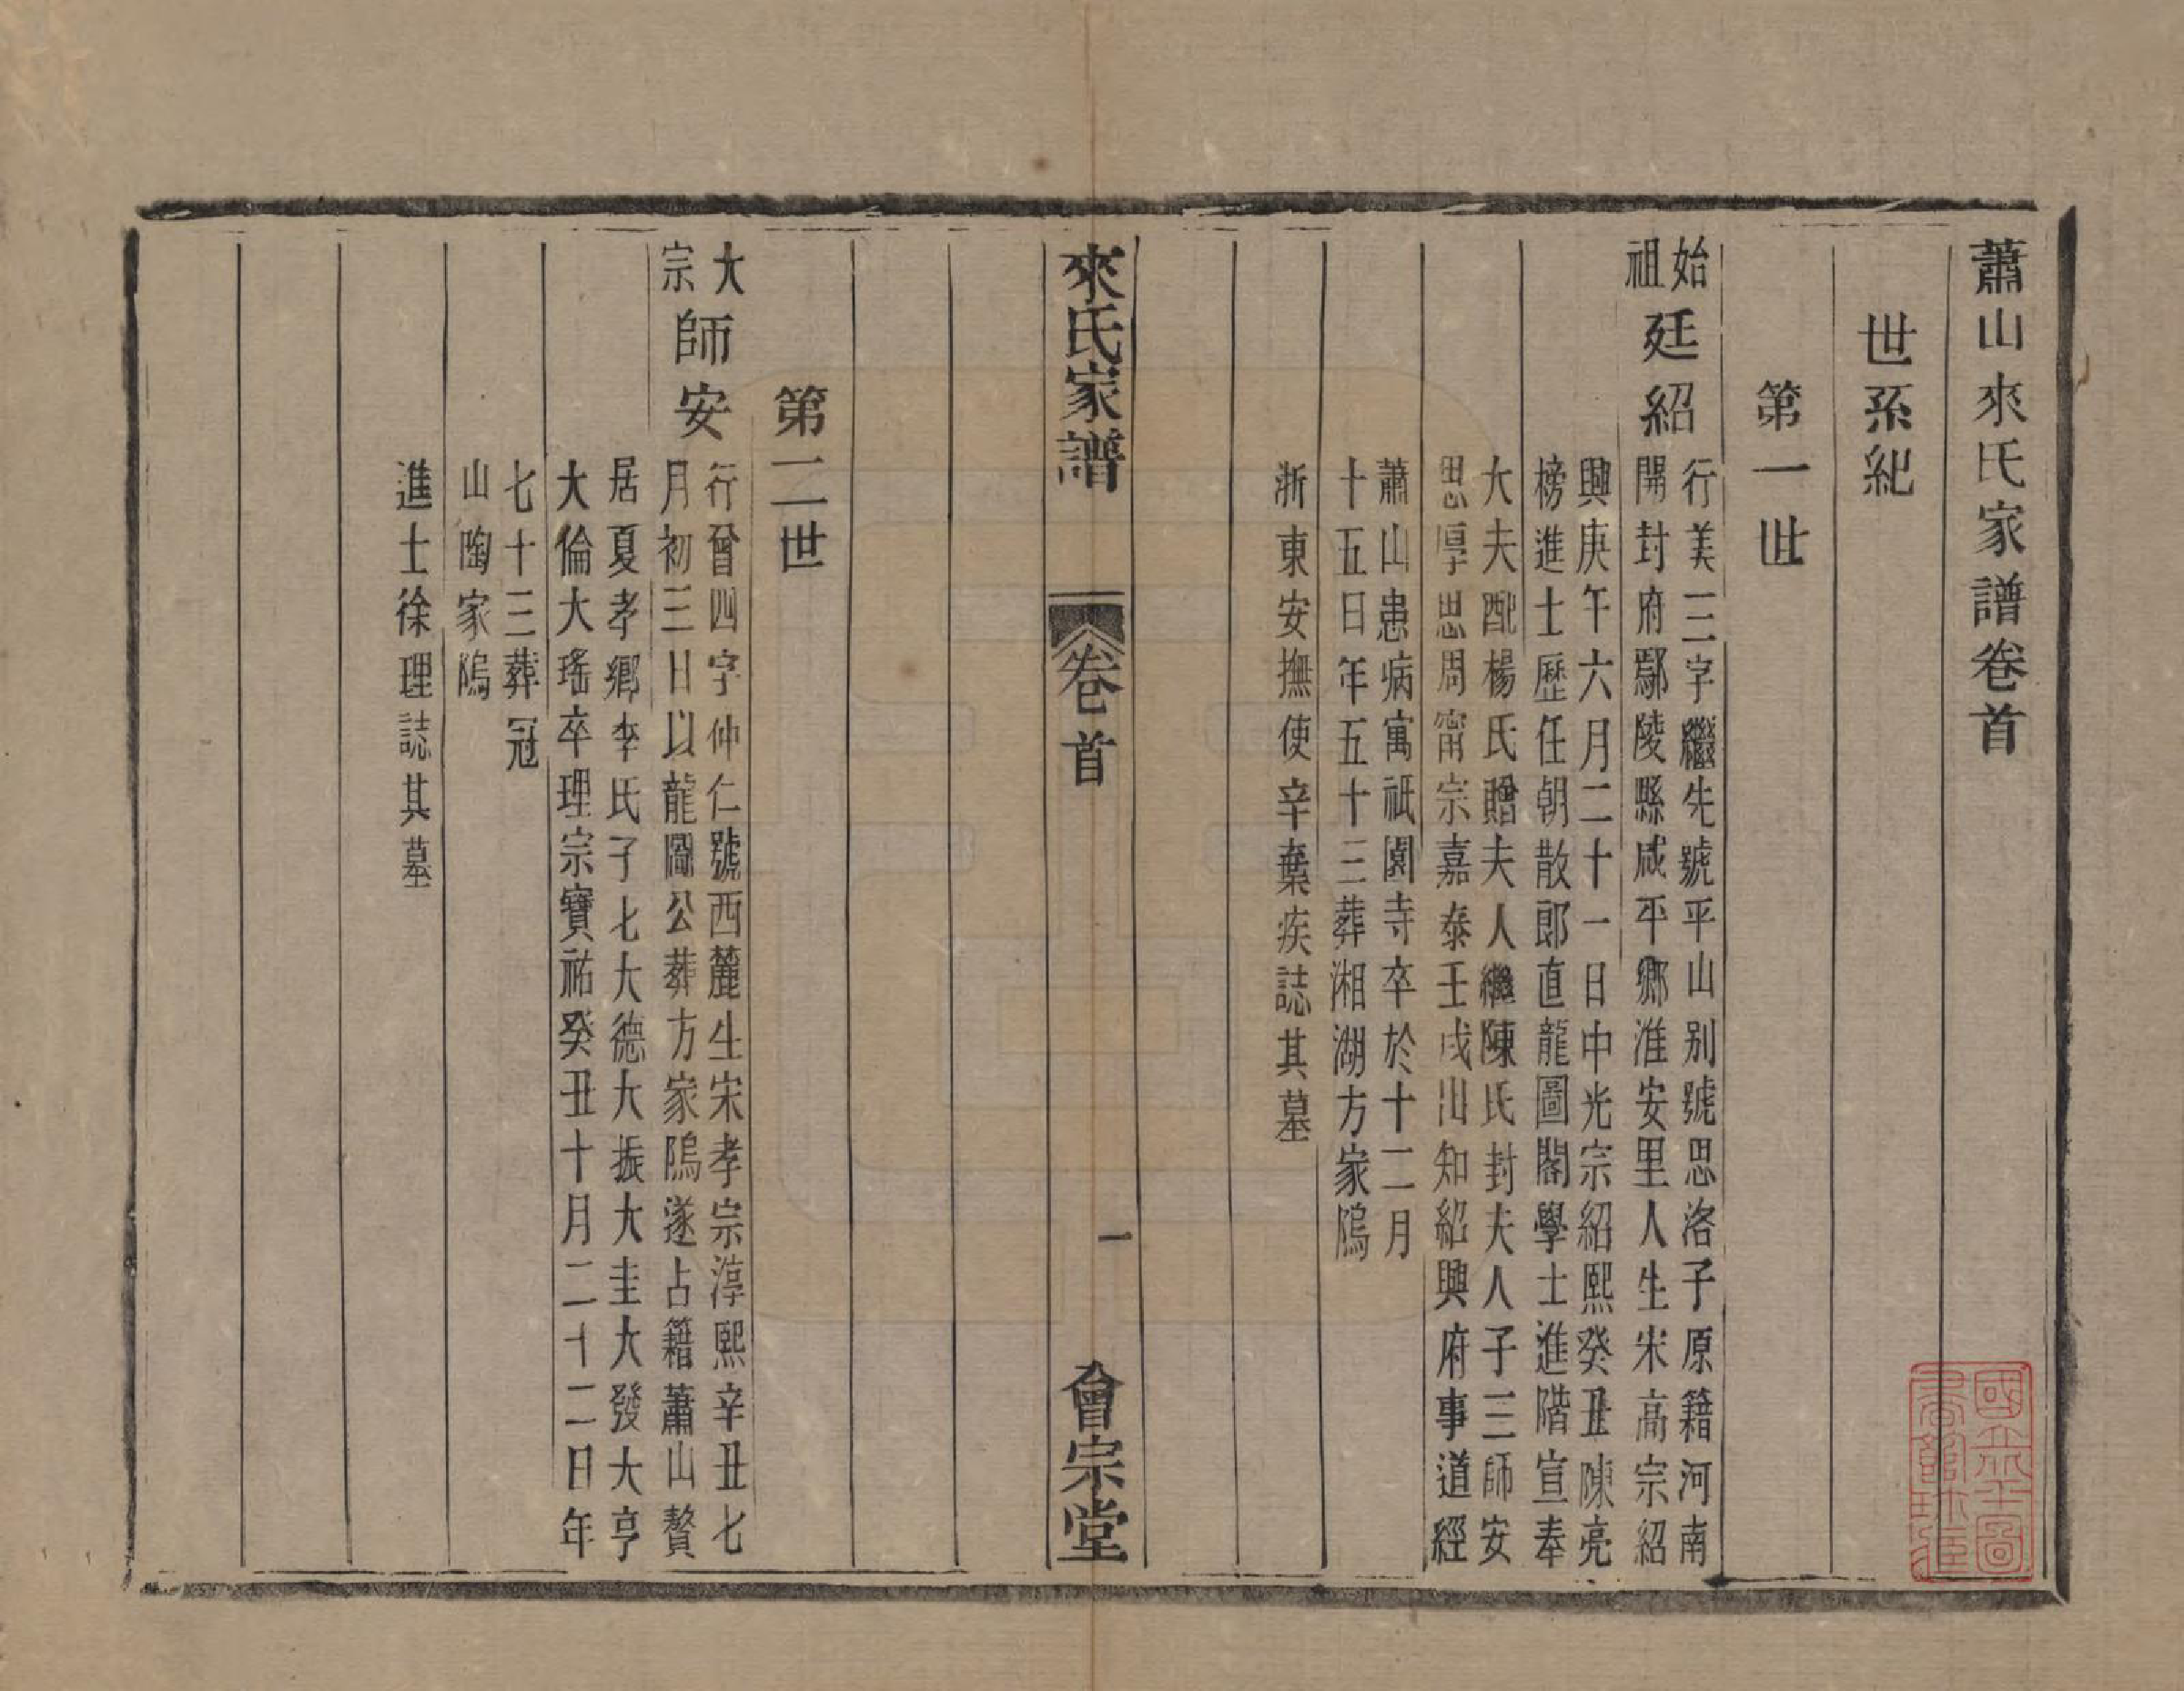 蕭山來氏家譜卷首
世系紀
第一世
始祖
廷紹
行美三字繼先號平山别號思洛子原籍河南
開封府鄢陵縣咸平鄉淮安里人生宋高宗紹
興庚午六月二十一日中光宗紹熙癸丑陳亮
榜進士歷任朝散郎直龍圖閣學士進階宣奉
大夫配楊氏贈夫人繼陳氏封夫人子三師安
思厚思周甯宗嘉泰壬戌出知紹興府事道經
蕭山患病寓祇園寺卒於十二月
十五日年五十三葬湘湖方家隖
浙東安撫使辛棄疾誌其墓
來氏家譜
卷首
一
會宗堂
第二世
大宗
師安
行曾四字仲仁號西麓生宋孝宗淳熙辛丑七
月初三日以龍圖公葬方家隖遂占籍蕭山贅
居夏孝鄉李氏子七大德大振大圭大發大亨
大倫大瑤卒理宗寶祐癸丑十月二十二日年
七十三葬冠
山陶家隖
進士徐理誌其墓
國立北平圖
書館珍藏